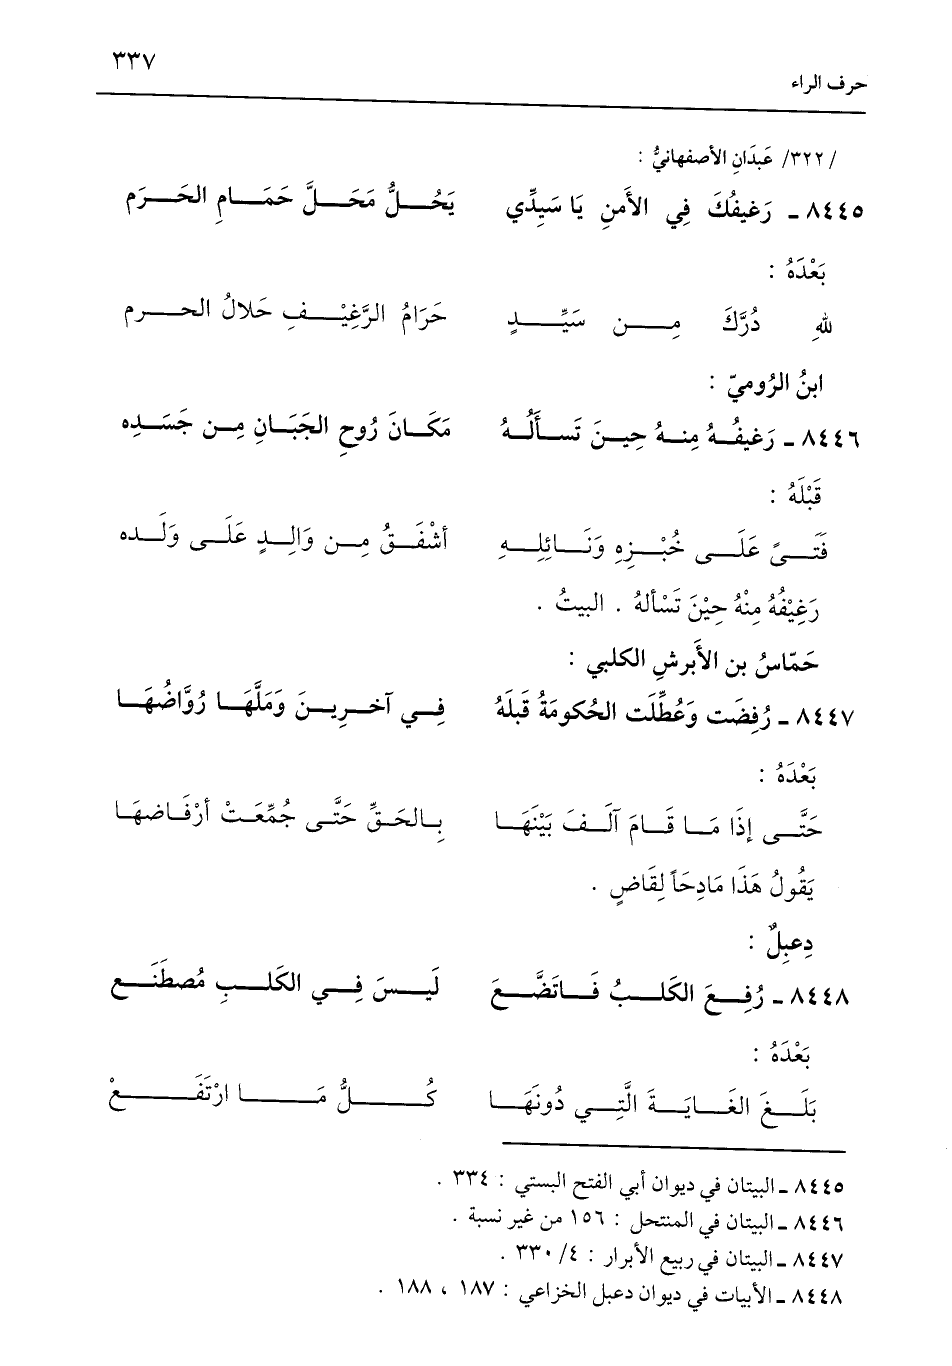 ٣٣٧
حرف الراء
/ ٣٢٢/ عَبدَانِ الأصفهانيُّ :
٨٤٤٥ ـ رَغيفُكَ فِي الأَمنِ يَا سَيِدِّي يَحُلُّ مَحَلَّ حَمَامِ الحَرَم
بَعْدَهُ :
للهِ دُرَّكَ مِن سَيِّدٍ حَرَامُ الرَّغِيْفِ حَلالُ الحرم
ابنُ الرُوميّ :
٨٤٤٦ ـ رَغيفُهُ مِنهُ حِينَ تَسأَلُهُ مَكَانَ رُوحِ الجَبَانِ مِن جَسَدِه
قَبْلَهُ :
فَتَىً عَلَى خُبْزِهِ وَنَائِلِهِ أشْفَقُ مِن وَالِدٍ عَلَى وَلَده
رَغِيْفُهُ مِنْهُ حِيْنَ تَسْألهُ . البيتُ .
حَمّاسُ بن الأَبرشِ الكلبي :
٨٤٤٧ ـ رُفِضَت وَعُطِّلَت الحُكومَةُ قَبلَهُ فِي آخَرِينَ وَمَلَّهَا رُوَّاضُهَا
بَعْدَهُ :
حَتَّى إذَا مَا قَامَ آلَفَ بَيْنَهَا بِالحَقِّ حَتَّى جُمِّعَتْ أرْفَاضهَا
يَقُولُ هَذَا مَادِحَاً لِقَاضٍ .
دِعبِلٌ :
٨٤٤٨ ـ رُفِعَ الكَلبُ فَاتَضَّعَ لَيسَ فِي الكَلبِ مُصطَنَع
بَعْدَهُ :
بَلَغَ الغَايَةَ الَّتِي دُونَهَا كُلُّ مَا ارْتَفَعْ
٨٤٤٥ ـ البيتان في ديوان أبي الفتح البستي : ٣٣٤ .
٨٤٤٦ ـ البيتان في المنتحل : ١٥٦ من غير نسبة .
٨٤٤٧ ـ البيتان في ربيع الأبرار : ٤/ ٣٣٠ .
٨٤٤٨ ـ الأبيات في ديوان دعبل الخزاعي : ١٨٧ ، ١٨٨ .